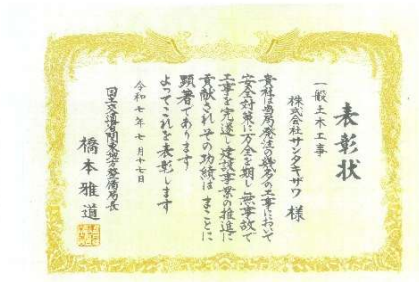 表彰状
一般土木工事
株式会社サンタキザワ 様
貴社は当局発注の幾多の工事において
安全対策に万全を期し無事故で
工事を完遂し建設事業の推進に
貢献されその功績はまことに
顕著であります
よってこれを表彰します
令和七年七月十七日
国土交通省関東地方整備局長
橋本雅道